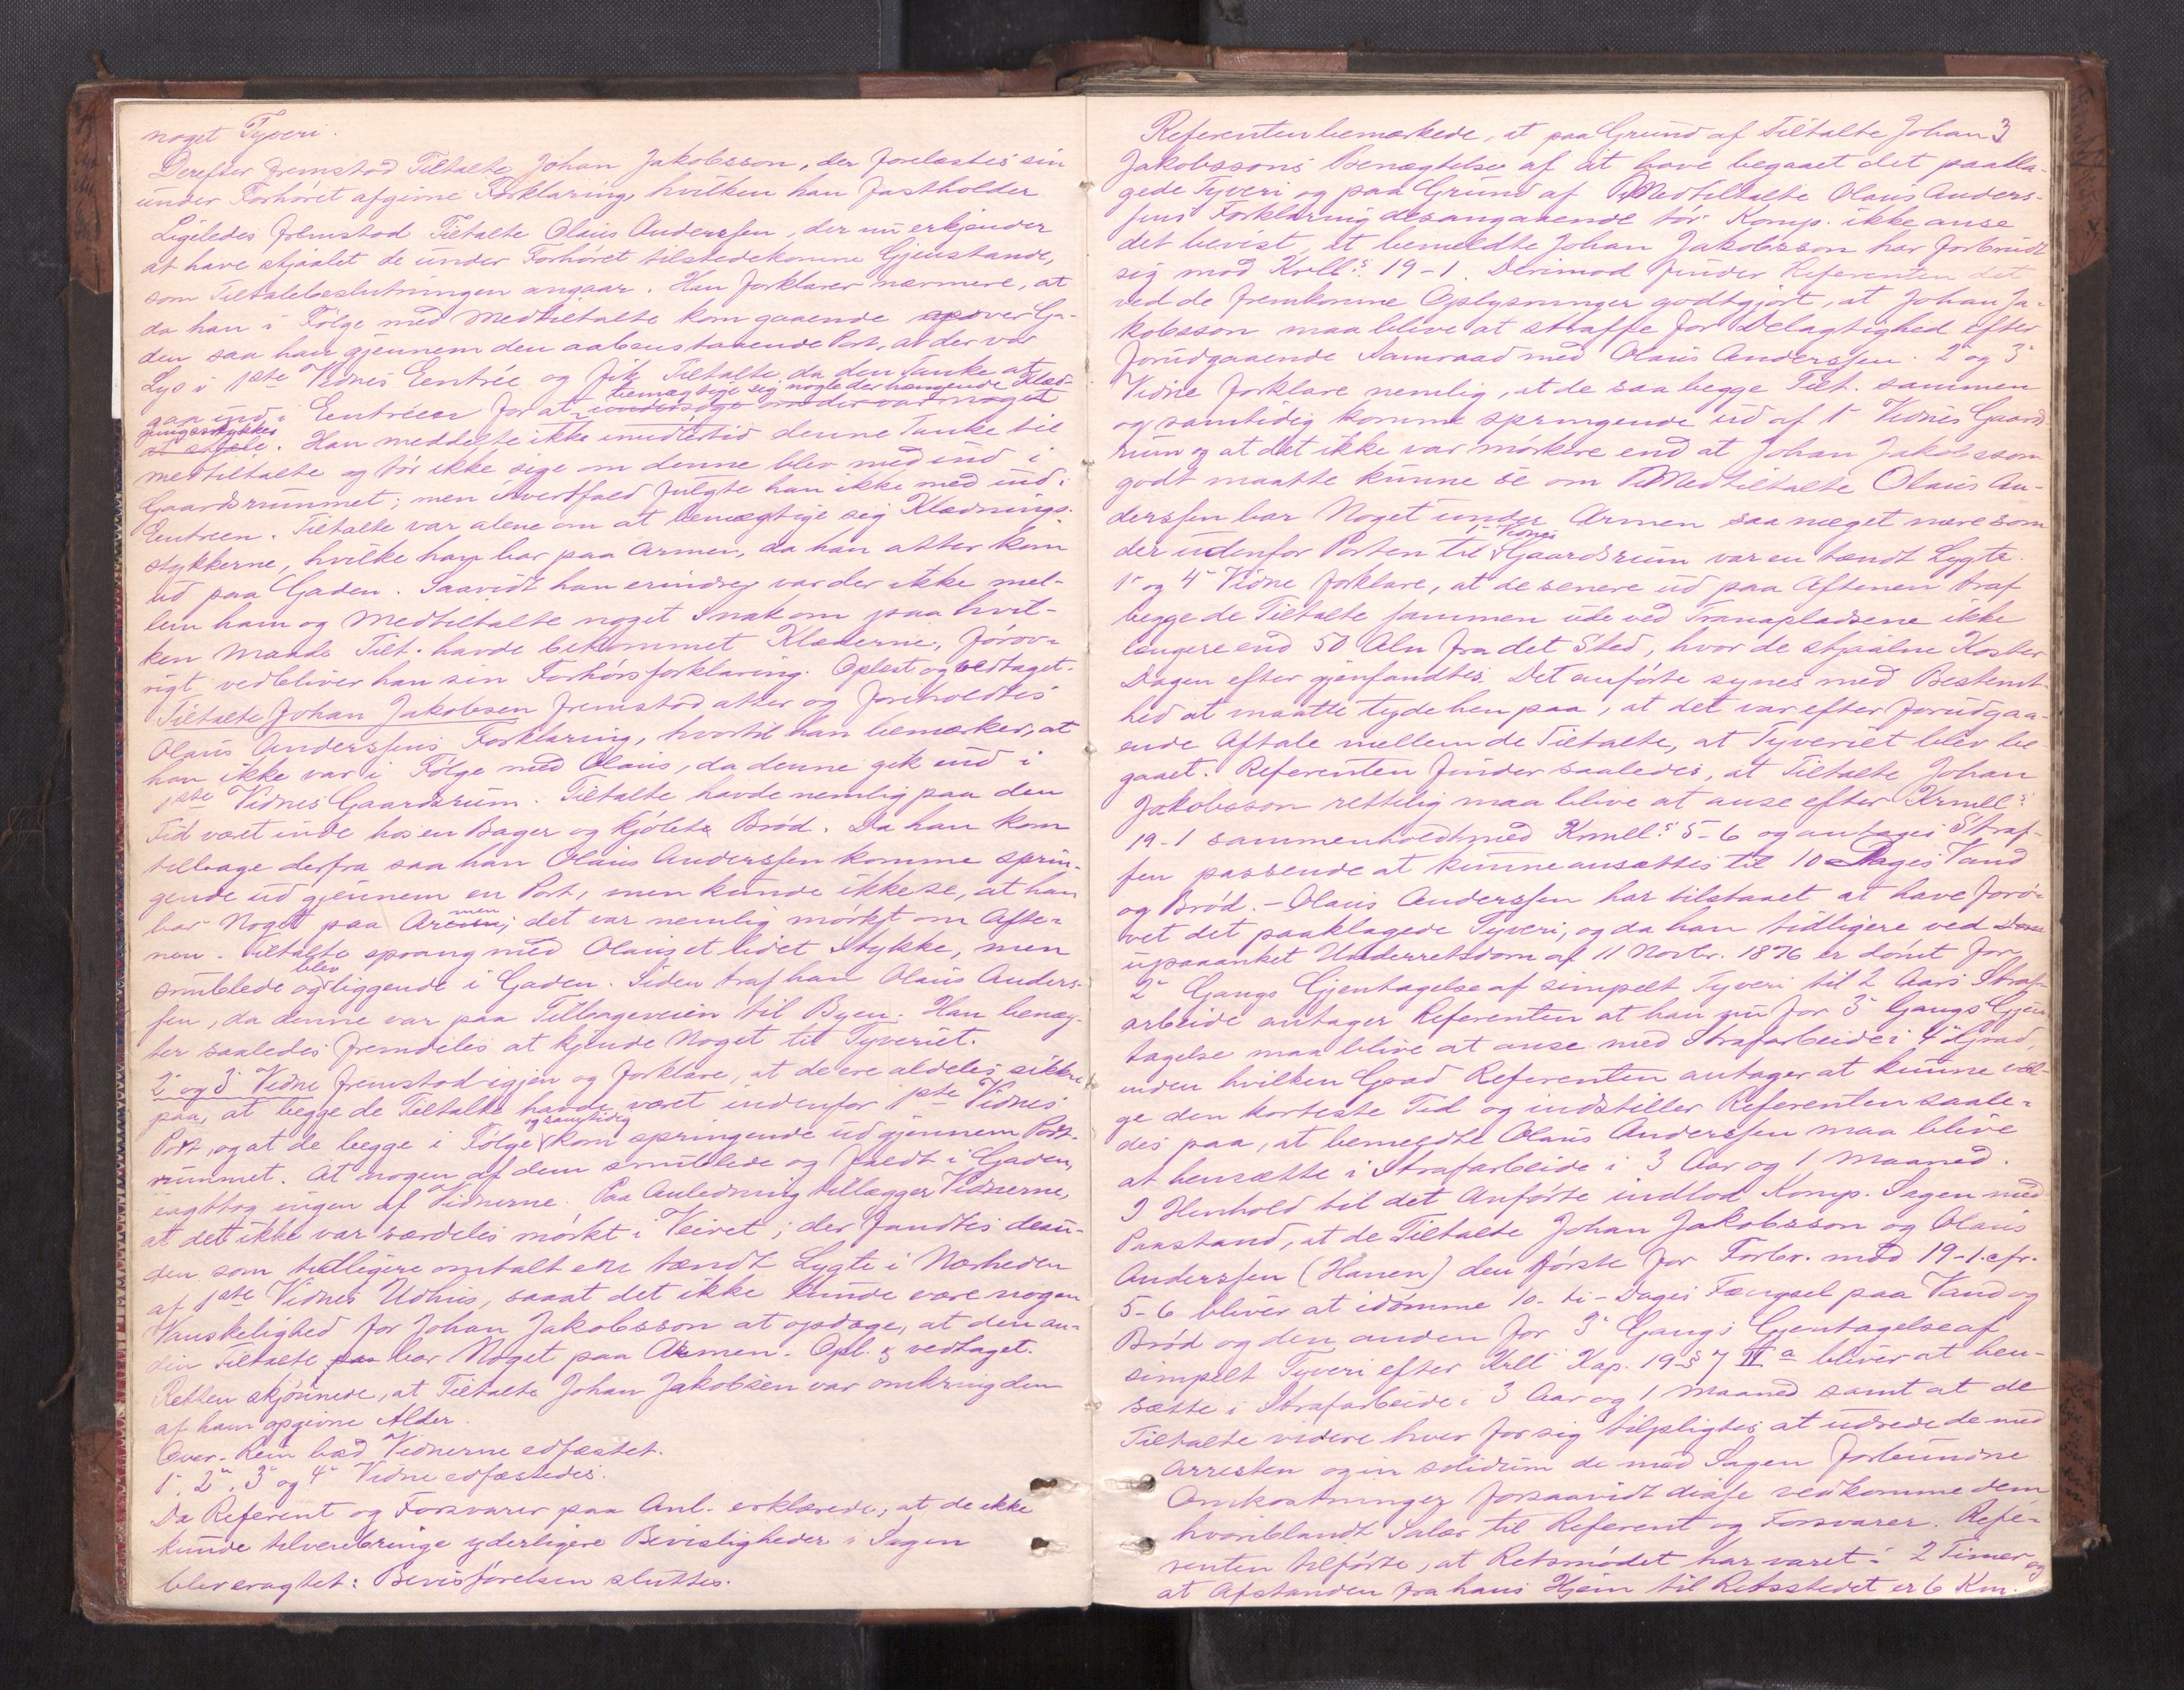 noget Tyveri.
Derefter fremstod Tiltalte Johan Jakobsson, der forelæstes sin
under Forhøret afgivne Forklaring, hvilken han fastholder
Ligeledes fremstod Tiltalte Olaus Anderssen, der nu erkjender
at have stjaalet de under Forhøret tilstedekomne Gjenstande,
som Tiltalebeslutningen angaar. Han forklarer nærmere, at
da han i Følge med Medtiltalte kom gaaende over Ga-
den saa han gjennem den aabenstaaende Port, at der var
Lys i 1ste Vidnes Eentrée og fik Tiltalte da den Tanke at
bemægtige sig nogle der hængende Klæd-
gaa ind i Eentréen for at undersøge om der var noget
ningsstykker
at stjæle. Han meddelte ikke imidlertid denne Tanke til
medtiltalte og tør ikke sige om denne blev med ind i
Gaardsrummet; men ihvertfald fulgte han ikke med ind i
Eentreen. Tiltalte var alene om at bemægtige sig Klædnings-
stykkerne, hvilke han bar paa Armen, da han atter kom
ud paa Gaden. Saavidt han erindrer var der ikke mel-
lem ham og Medtiltalte noget Snak om paa hvil-
ken Maade Tilt. havde bekommet Klæderne. Forøv-
rigt vedbliver han sin Forhørsforklaring. Oplæst og vedtaget.
Tiltalte Johan Jakobsen fremstod atter og foreholdtes
Olaus Anderssens Forklaring, hvortil han bemærker, at
han ikke var i Følge med Olaus, da denne gik ind i
1ste Vidnes Gaardsrum. Tiltalte havde nemlig paa den
Tid været inde hos en Bager og kjøbte Brød. Da han kom
tilbage derfra saa han Olaus Anderssen komme sprin-
gende ud gjennem en Port, men kunde ikke se, at han
bar Noget paa Armen; det var nemlig mørkt om Afte-
nen. Tiltalte sprang med Olaus et lidet Stykke, men
blev
snublede og liggende i Gaden. Siden traf han Olaus Anders-
sen, da denne var paa Tilbageveien til Byen. Han benæg-
ter saaledes fremdeles at kjende Noget til Tyveriet.
2 og 3 Vidne fremstod igjen og forklare, at de ere aldeles sikkre
paa, at begge de Tiltalte havde været indenfor 1ste Vidnes
og samtidig
Port, og at de begge i Følge kom springende ud gjennem Port-
rummet. At nogen af dem snublede og faldt i Gaden,
iagttog ingen af Vidnerne. Paa Anledning tillægger Vidnerne,
at det ikke var særdeles mørkt i Veiret; der fandtes desu-
den som tidligere omtalt en tændt Lygte i Nærheden
af 1ste Vidnes Udhus, saaat det ikke kunde være nogen
Vanskelighed for Johan Jakobsson at opdage, at den an-
den Tiltalte bar Noget paa Armen. Opl. & vedtaget.
Retten skjønnede, at Tiltalte Johan Jakobsen var omkring den
af ham opgivne Alder.
bad Vidnerne edfæstet.
1, 2, 3 og 4 Vidne edfæstedes.
Da Referent og Forsvarer paa Anl. erklærede, at de ikke
kunde tilveiebringe yderligere Bevisligheder i Sagen
blev eragtet: Bevisførelsen sluttes.
3
Referenten bemærkede, at paa Grund af Tiltalte Johan
Jakobssons Benægtelse af at have begaaet det paakla-
gede Tyveri og paa Grund af Medtiltalte Olaus Anders-
sens Forklaring desangaaende tør Komp. ikke anse
det bevist, at bemeldte Johan Jakobsson har forbrudt
sig mod Krll's 19-1. Derimod finder Referenten det
ved de fremkomne Oplysninger godtgjort, at Johan Ja-
kobsson maa blive at straffe for Delagtighed efter
forudgaaende Samraad med Olaus Anderssen. 2 og 3
Vidne forklare nemlig, at de saa begge Tilt. sammen
og samtidig komme springende ud af 1 Vidnes Gaards-
rum og at det ikke var mørkere end at Johan Jakobsson
godt maatte kunne se om Medtiltalte Olaus An-
derssen bar Noget under Armen saa meget mere som
1 Vidnes
der udenfor Porten til Gaardsrum var en tændt Lygte.
1 og 4 Vidne forklare, at de senere ud paa Aftenen traf
begge de Tiltalte sammen ude ved Tranapladsene ikke
længere end 50 Alen fra det Sted, hvor de stjaalne Koster
Dagen efter gjenfandtes. Det anførte synes med Bestemt-
hed at maatte tyde hen paa, at det var efter forudgaa-
ende Aftale mellem de Tiltalte, at Tyveriet blev be-
gaaet. Referenten finder saaledes, at Tiltalte Johan
Jakobsson rettelig maa blive at anse efter Krmll's
19-1 sammenholdt med Krmll's 5-6 og antages Straf-
fen passende at kunne ansættes til 10 Dages Vand
og Brød. - Olaus Anderssen har tilstaaet at have forø-
vet det paaklagede Tyveri, og da han tidligere ved
upaaanket Underretsdom af 11 Novbr. 1876 er dømt for
2 Gangs Gjentagelse af simpelt Tyveri til 2 Aars Straf-
arbeide antager Referenten at han nu for 3 Gangs Gjen-
tagelse maa blive at anse med Strafarbeide i 4 Grad,
inden hvilken Grad Referenten antager at kunne væl-
ge den korteste Tid og indstiller Referenten saale-
des paa, at bemeldte Olaus Anderssen maa blive
at hensætte i Strafarbeide i 3 Aar og 1 Maaned.
I Henhold til det Anførte indlod Komp. Sagen med
Paastand, at de Tiltalte Johan Jakobsson og Olaus
Anderssen (Hanen) den første for Forbr. mod 19-1. cfr.
5-6 bliver at idømme 10- ti- Dages Fængsel paa Vand og
Brød og den anden for 3 Gangs Gjentagelse af
simpelt Tyveri efter Krll Kap. 19 § 7 IV a bliver at hen-
sætte i Strafarbeide i 3 Aar og 1 Maaned samt at de
Tiltalte videre hver for sig tilpligtes at udrede de med
Arresten og in solidum de med Sagen forbundne
Omkostninger forsaavidt disse vedkomme dem
hvoriblandt Salær til Referent og Forsvarer. Refe-
renten tilførte, at Retsmødet har varet i 2 Timer og
at Afstanden fra hans Hjem til Retsstedet er 6 Km.